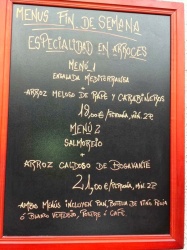 MENUS FIN DE SEMANA
ESPECIALIDAD EN ARROCES
MENÚ 1
ENSALADA MEDITERRANEA
+
ARROZ MELOSO DE RAPE Y CARABINEROS
18,00€/PERSONA, MIN. 2P
MENÚ 2
SALMOREJO
+
ARROZ CALDOSO DE BOGAVANTE
21,00€/PERSONA, MIN. 2P
-AMBOS MENÚS INCLUYEN PAN, BOTELLA DE VINO RIOJA
Ó BLANCO VERDEJO, POSTRE Ó CAFÉ